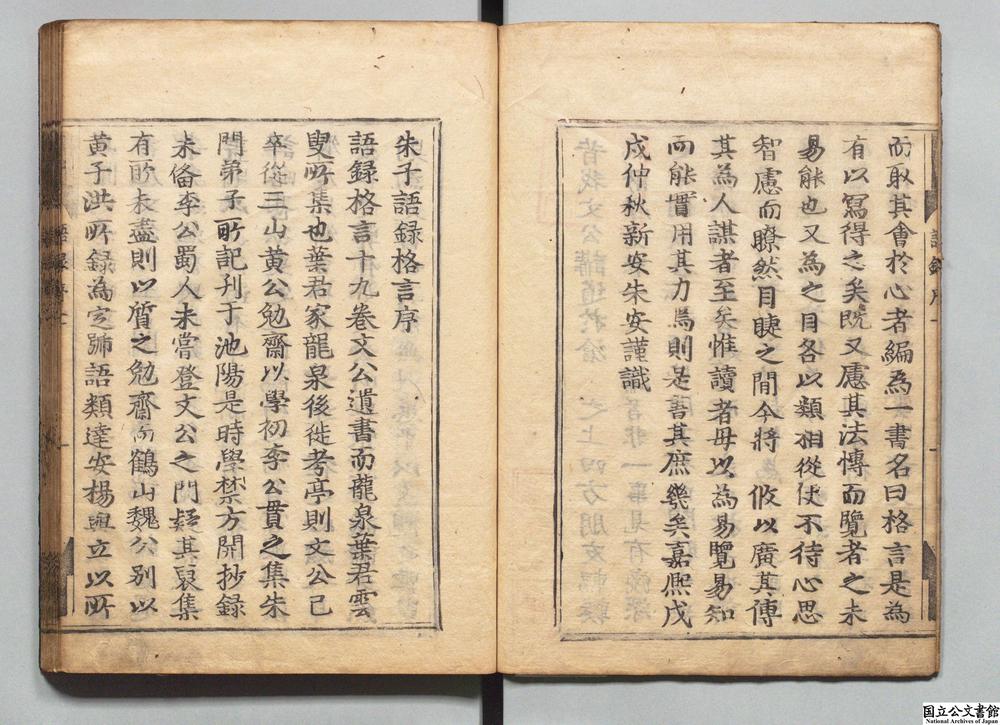 而取其會於心者編為一書名曰格言是為
有以寫得之矣既又慮其法慱而覽者之未
易能也又為之目各以類相從使不待心思
智慮而瞭然目睫之間今將攸以廣其傳
其為人謀者至矣惟讀者毋以為易覽易知
而能實用其力焉則是書其庶幾矣嘉熙戊
戌仲秋新安朱安謹識
朱子語録格言序
語録格言十九卷文公遺書而龍泉葉君雲
叟所集也葉君家龍泉後徙考亭則文公已
卒從三山黄公勉齋以學初李公貫之集朱
門弟子所記刋于池陽是時學禁方開抄録
未俻李公蜀人未嘗登文公之門疑其裒集
有所未盡則以質之勉齋而鶴山魏公别以
黄子洪所録為定號語類達安楊與立以所
國立公文書館
National Archives of Japan